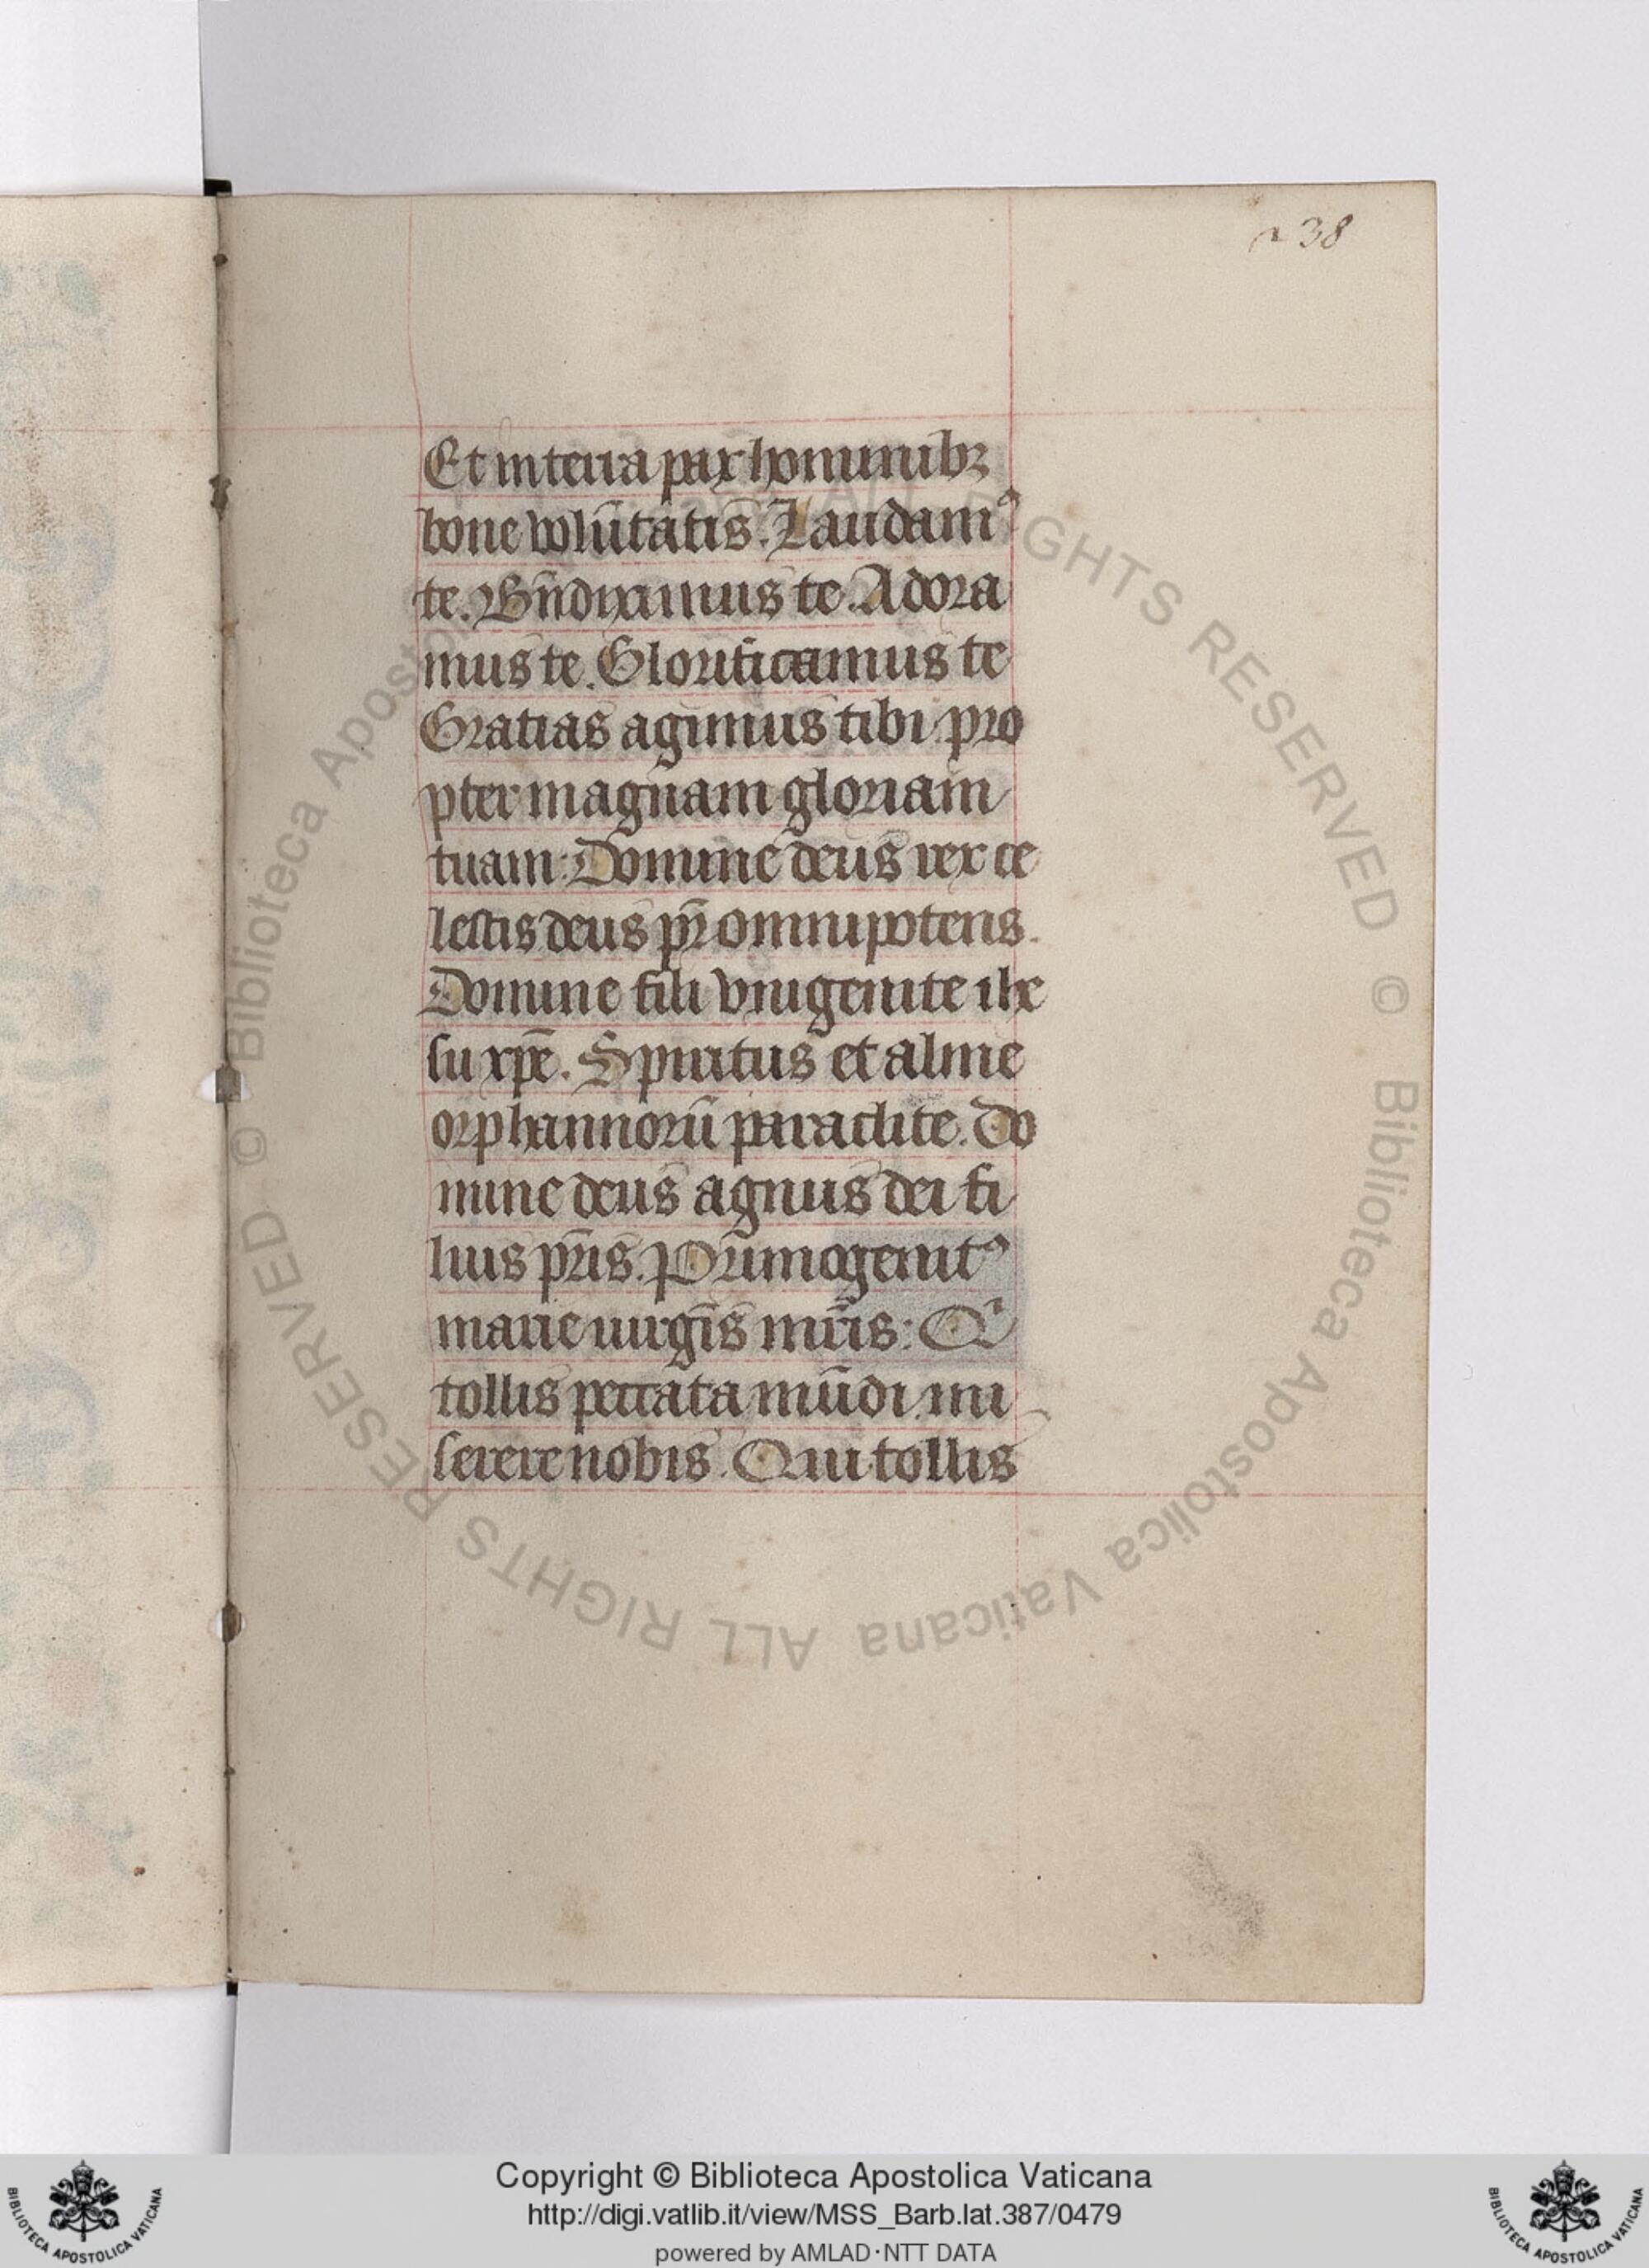 238
Et in terra pax hominibꝫ
bone volūtatis. Laudamꝰ
te. Bn̄dicimus te. Adora
mus te. Glorificamus te
Gratias agimus tibi pro
pter magnam gloriam
tuam: Domine deus rex ce
lestis deus pr̄ omnipotens.
Domine fili vnigenite ihe
su xpē. Spiritus et alme
orphannorū paraclite. Do
mine deus agnus dei fi
lius pr̄is. Primogenitꝰ
marie uirgīs mr̄is: Qⁱ
tollis peccata mūdi mi
serere nobis. Qui tollis
© Biblioteca Apostolica Vaticana ALL RIGHTS RESERVED © Biblioteca Apostolica Vaticana ALL RIGHTS RESERVED
Copyright © Biblioteca Apostolica Vaticana
http://digi.vatlib.it/view/MSS_Barb.lat.387/0479
powered by AMLAD·NTT DATA
BIBLIOTECA APOSTOLICA VATICANA
BIBLIOTECA APOSTOLICA VATICANA